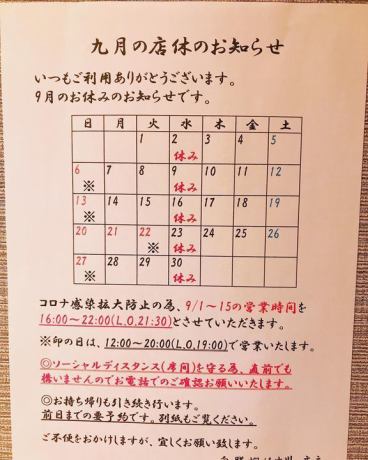 九月の店休のお知らせ
いつもご利用ありがとうございます。
9月のお休みのお知らせです。
日 月 火 水 木 金 土
1 2 3 4 5
休み
6 7 8 9 10 11 12
※ 休み
13 14 15 16 17 18 19
※ 休み
20 21 22 23 24 25 26
※ 休み
27 28 29 30
※ 休み
コロナ感染拡大防止の為、9/1~15の営業時間を
16:00~22:00(L.O.21:30)とさせていただきます。
※印の日は、12:00~20:00(L.O.19:00)で営業いたします。
◎ソーシャルディスタンス(席間)を守る為、直前でも
構いませんのでお電話でのご確認お願いいたします。
◎お持ち帰りも引き続き行います。
前日までの要予約です。別紙もご覧ください。
ご不便をおかけしますが、宜しくお願い致します。